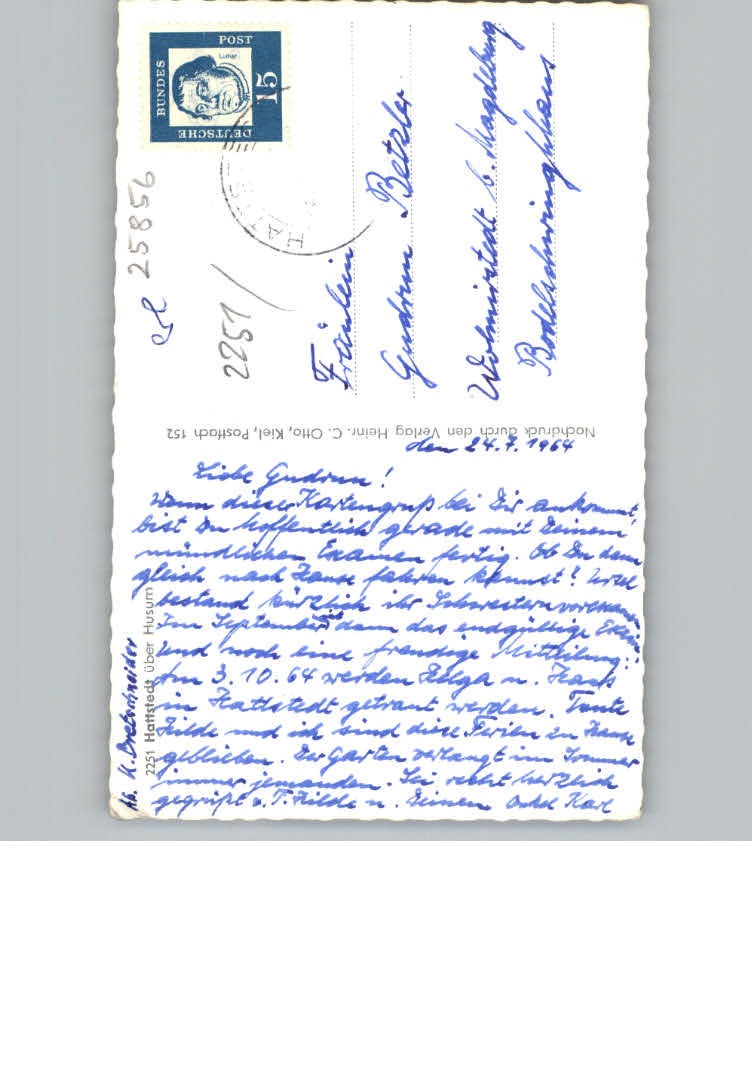 DEUTSCHE
BUNDES
POST
15
Luther
HATTS
25856
2251
Fräulein
Gudrun Betzler
Wolmirstedt b. Magdeburg
Bodelschwinghhaus
Nachdruck durch den Verlag Heinr. C. Otto, Kiel, Postfach 152
den 24.7.1964
Liebe Gudrun!
Wenn dieser Kartengruß bei Dir ankommt,
bist Du hoffentlich gerade mit Deinem
mündlichen Examen fertig. Ob Du dann
gleich nach Hause fahren kannst? Ursel
bestand kürzlich ihr Schwesternvorexamen
Im September ist dann das endgültige Examen
Und noch eine freudige Mitteilung:
Am 3.10.64 werden Helga u. Hans
in Hattstedt getraut werden. Tante
Hilde und ich sind diese Ferien zu Hause
geblieben. Der Garten verlangt im Sommer
immer jemanden. Sei recht herzlich
gegrüßt v. T. Hilde u. Deinem Onkel Karl
Ab. K. Bretschneider
2251 Hattstedt über Husum